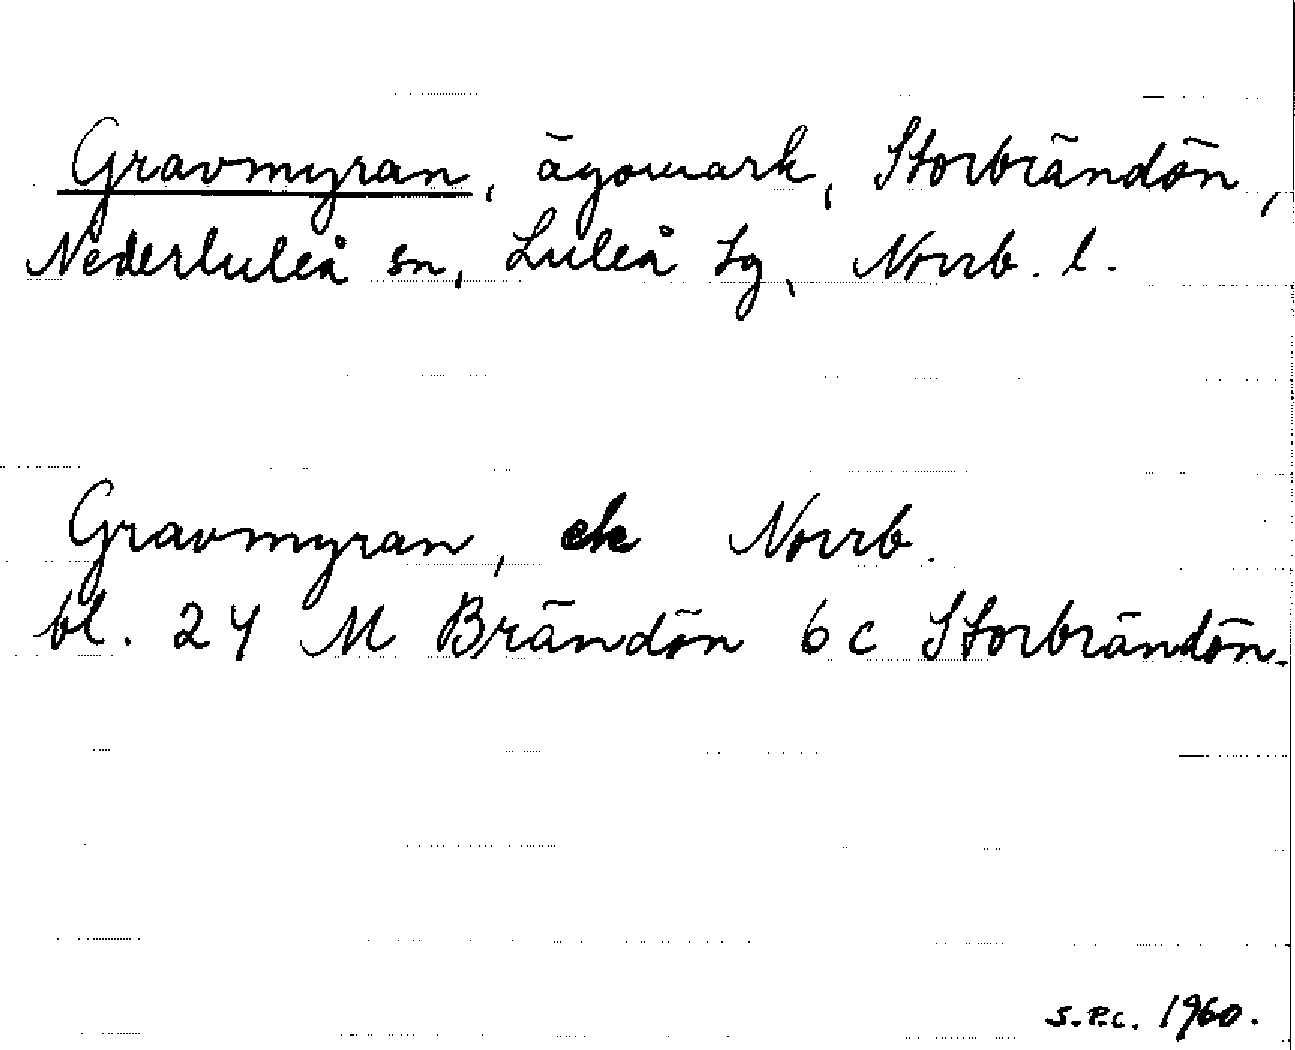 Gravmyran, ägomark, Storbrändön,
Nederluleå sn, Luleå tg, Norrb. l.
Gravmyran, ek Norrb.
bl. 24 M Brändön 6c Storbrändön.
S.P.C. 1960.